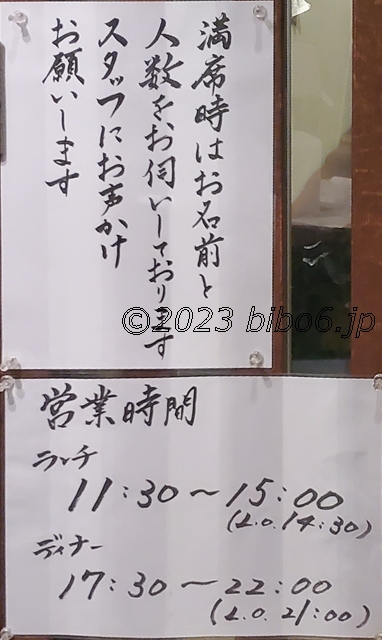 満席時はお名前と
人数をお伺いしております
スタッフにお声かけ
お願いします
©2023 bibo6.jp
営業時間
ランチ
11:30～15:00
(L.O.14:30)
ディナー
17:30～22:00
(L.O.21:00)